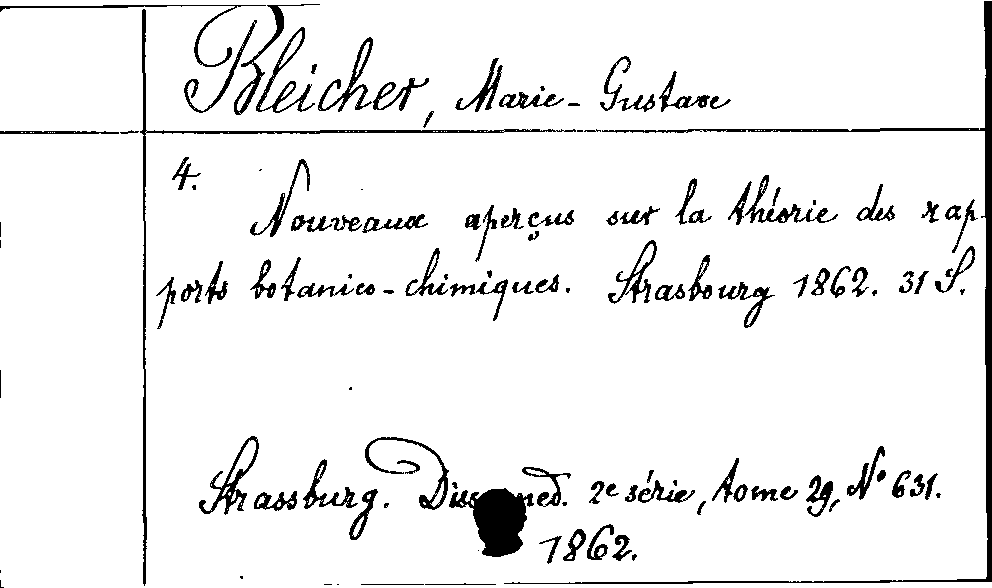 Bleicher, Marie-Gustave
4.
Nouveaux aperçus sur la théorie des rap-
ports botanico-chimiques. Strasbourg 1862. 31 S.
Strassburg. Diss. med. 2e série, tome 29, No 631.
1862.